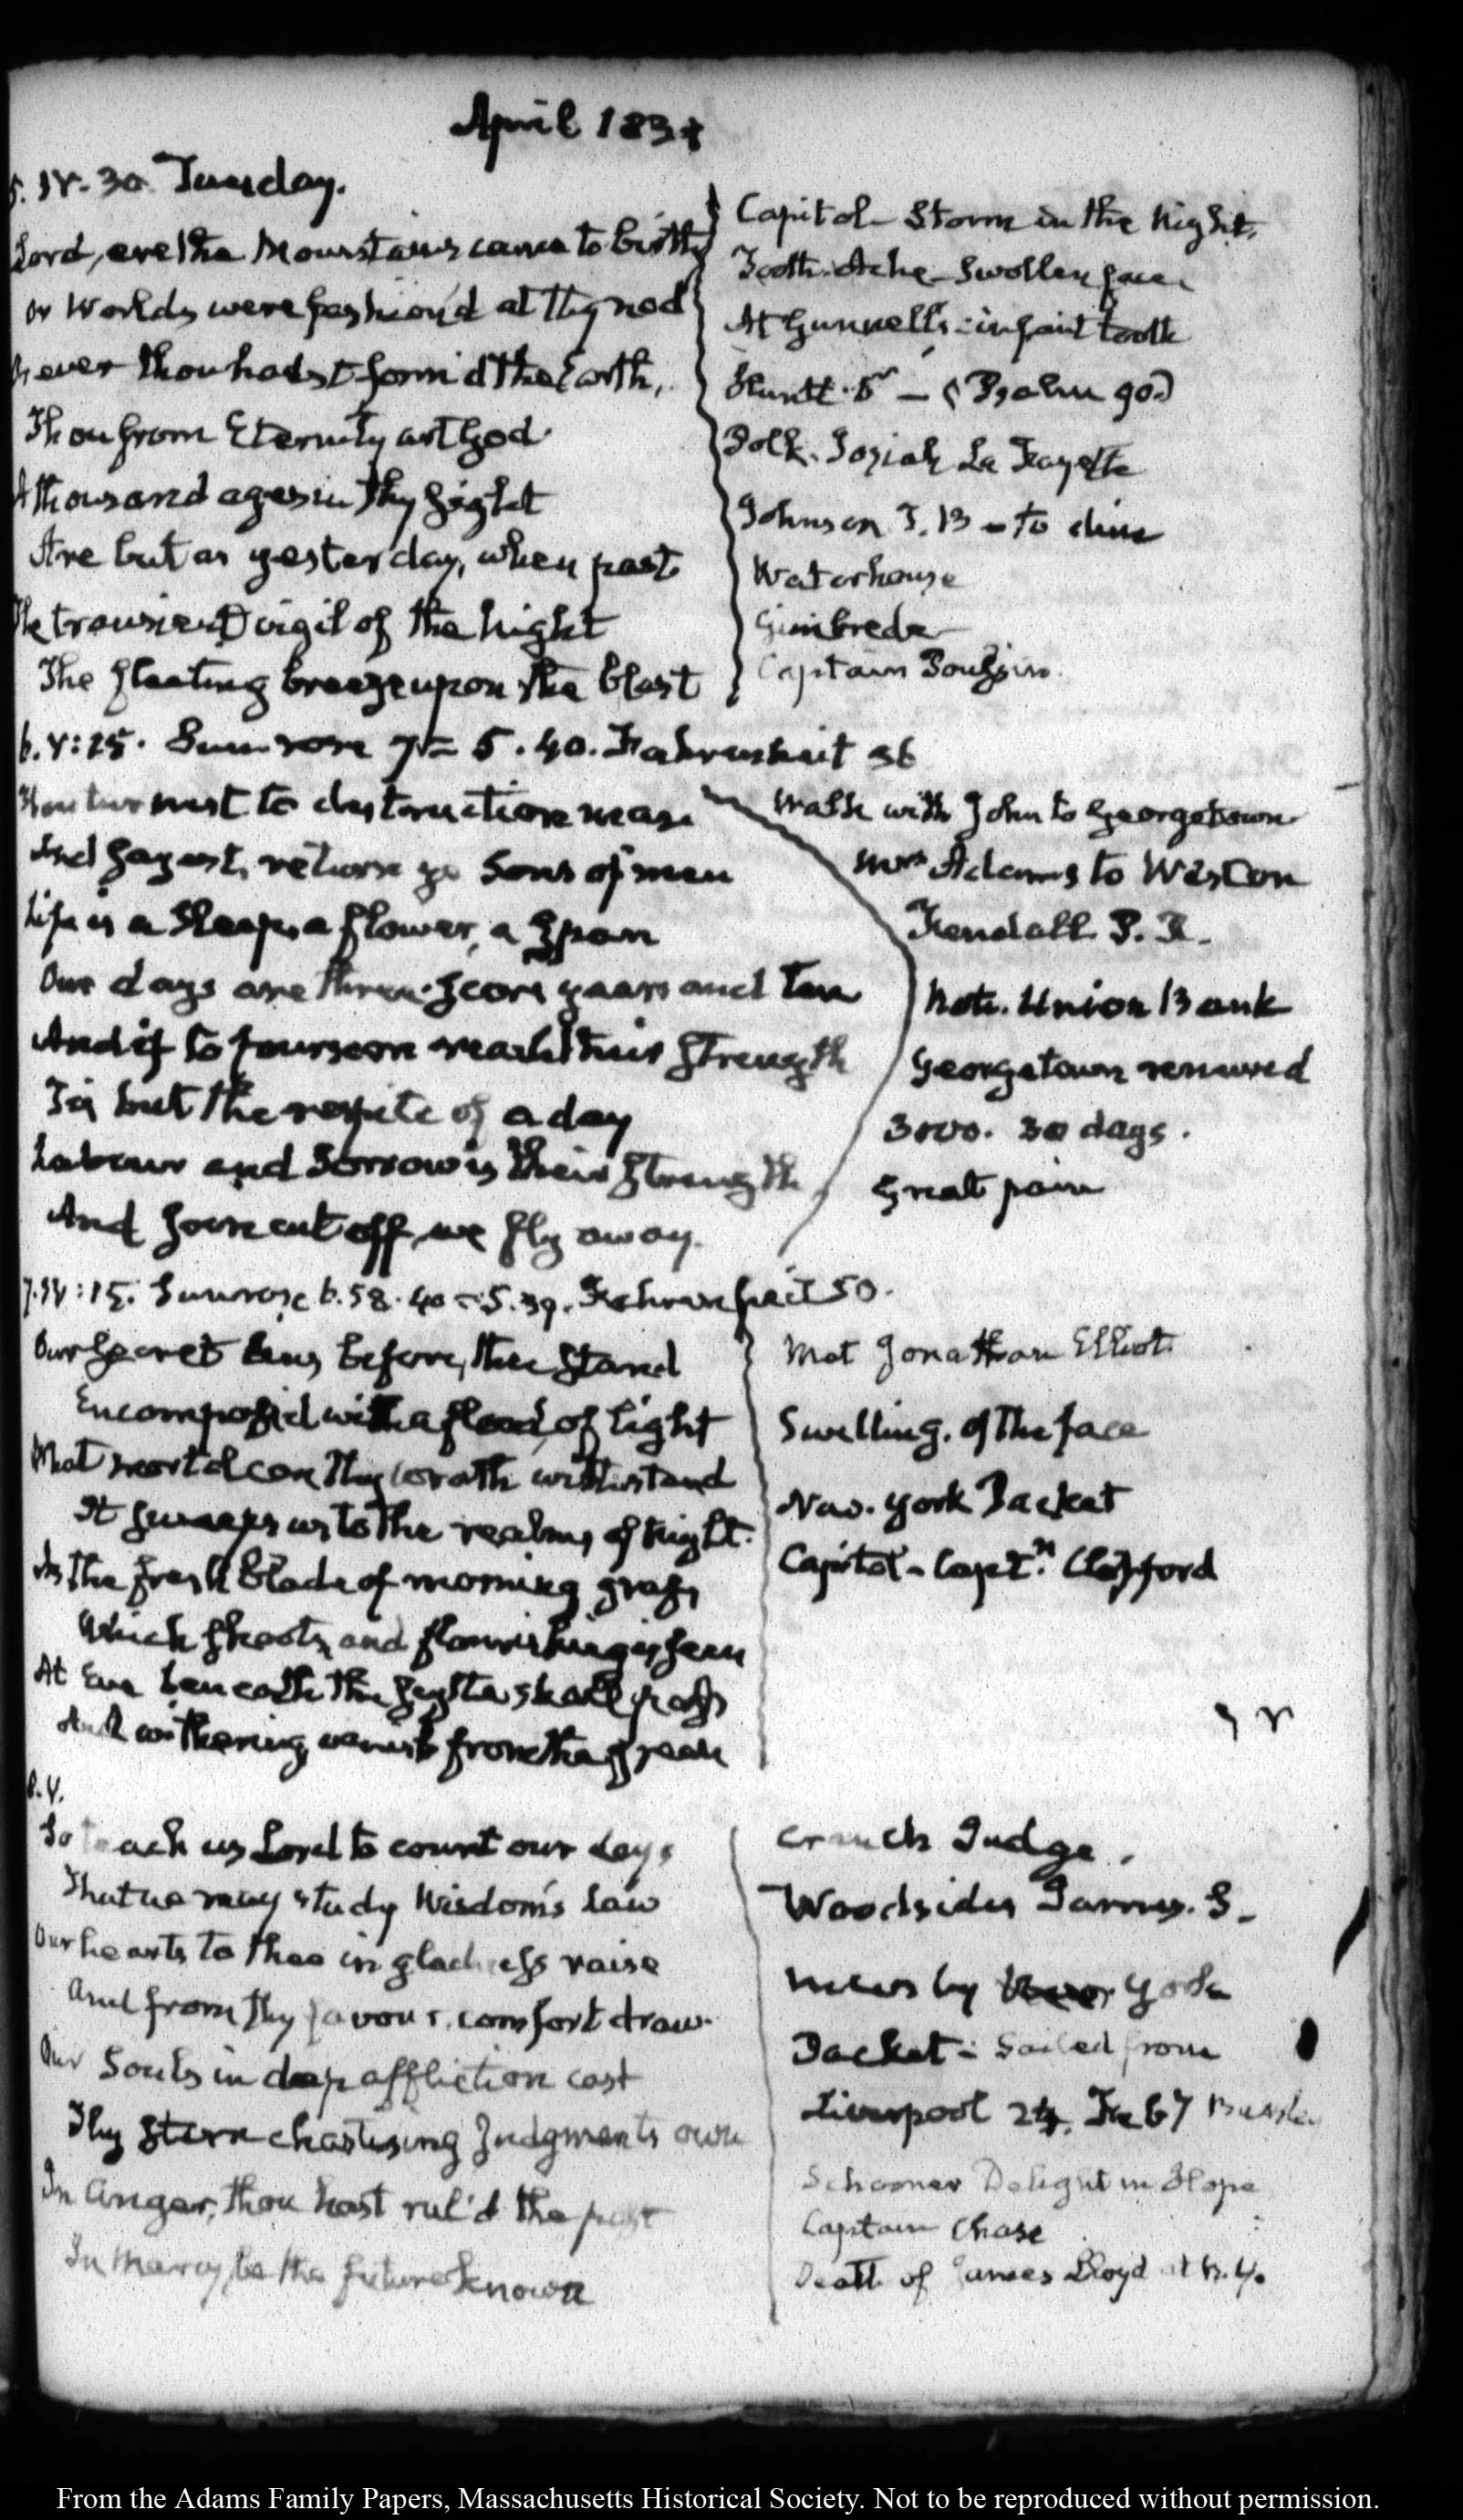 April 1831
5. IV. 30 Tuesday.
Lord, ere the Mountains came to birth
Or Worlds were fashion'd at thy nod
Or ever thou hadst form'd the Earth,
Thou from Eternity art God.
A thousand ages in thy sight
Are but as yesterday, when past
The transient vigil of the night
The fleeting breeze upon the blast
Capitol - Storm in the Night.
Tooth-Ache - Swollen face
At Gunnell's - infant tooth
(Psalm 90.)
Polk. Josiah La Fayette
Johnson J. B - to dine
Waterhouse
Gimbrede
Captain
6. V: 25. Sun rose 5.40. Fahrenheit 36
Thou turnest to destruction man
And sayest, return ye Sons of men
Life is a Sleep, a flower, a Span
Our days are three-score years and ten
And if to fourscore reach their strength
Tis but the respite of a day
Labour and Sorrow is their strength
And soon cut off we fly away.
Walk with John to Georgetown
Mrs Adams to
Kendall
Note. Union Bank
Georgetown renewed
3000. 30 days.
Great pain
7. IV: 15. Sun rose 5.39. Fahrenheit 50.
Our secret sins before thee stand
Encompass'd with a flood of light
What mortal can thy wrath withstand
It sweeps us to the realms of Night.
As the fresh blade of morning grass
Which shoots and flourishing is seen
At Eve beneath the scythe shall pass
And withering vanish from the green
Met Jonathan Elliot.
Swelling. of the face
New. York Packet
Capitol - Captn.
8. V.
So teach us Lord to count our days
That we may study Wisdom's law
Our hearts to thee in gladness raise
And from thy favour, comfort draw.
Our Souls in deep affliction cast
Thy stern chastising Judgments own
In anger, thou hast rul'd the past
In Mercy, be the future known
Cranch Judge.
Woodsides James. S.
news by New York
Packet - Sailed from
Liverpool 24. Feby
Schooner Delight in Hope
Captain Chase
Death of James Lloyd at N. Y.
From the Adams Family Papers, Massachusetts Historical Society. Not to be reproduced without permission.